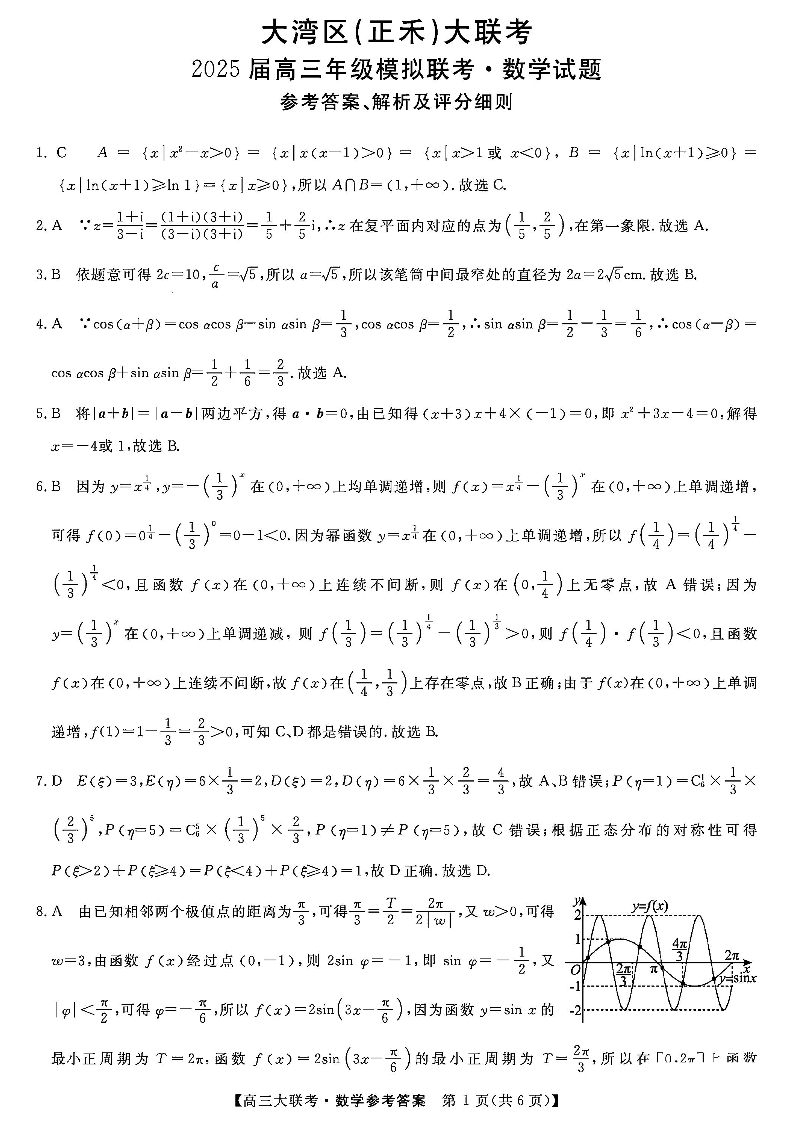 大湾区(正禾)大联考
2025届高三年级模拟联考·数学试题
参考答案、解析及评分细则
1. C A = {x|x²-x>0} = {x|x(x-1)>0} = {x|x>1或 x<0}, B = {x|ln(x+1)≥0} =
{x|ln(x+1)≥ln 1}={x|x≥0},所以A∩B=(1,+∞).故选C.
2. A ∵z=\frac{1+i}{3-i}=\frac{(1+i)(3+i)}{(3-i)(3+i)}=\frac{1}{5}+\frac{2}{5}i,∴z在复平面内对应的点为(\frac{1}{5},\frac{2}{5}),在第一象限.故选A.
3. B 依题意可得2c=10,\frac{c}{a}=√5,所以a=√5,所以该笔筒中间最窄处的直径为2a=2√5cm.故选B.
4. A ∵cos(α+β)=cos αcos β-sin αsin β=\frac{1}{3},cos αcos β=\frac{1}{2},∴sin αsin β=\frac{1}{2}-\frac{1}{3}=\frac{1}{6},∴cos(α-β)=
cos αcos β+sin αsin β=\frac{1}{2}+\frac{1}{6}=\frac{2}{3}.故选A.
5. B 将|a+b|=|a-b|两边平方,得a·b=0,由已知得(x+3)x+4×(-1)=0,即x²+3x-4=0,解得
x=-4或1,故选B.
6. B 因为y=x^{\frac{1}{4}},y=-(\frac{1}{3})^x在(0,+∞)上均单调递增,则f(x)=x^{\frac{1}{4}}-(\frac{1}{3})^x在(0,+∞)上单调递增,
可得f(0)=0^{\frac{1}{4}}-(\frac{1}{3})^0=0-1<0.因为幂函数y=x^{\frac{1}{4}}在(0,+∞)上单调递增,所以f(\frac{1}{4})=(\frac{1}{4})^{\frac{1}{4}}-
(\frac{1}{3})^{\frac{1}{4}}<0,且函数f(x)在(0,+∞)上连续不间断,则f(x)在(0,\frac{1}{4})上无零点,故A错误;因为
y=(\frac{1}{3})^x在(0,+∞)上单调递减,则f(\frac{1}{3})=(\frac{1}{3})^{\frac{1}{4}}-(\frac{1}{3})^{\frac{1}{3}}>0,则f(\frac{1}{4})·f(\frac{1}{3})<0,且函数
f(x)在(0,+∞)上连续不间断,故f(x)在(\frac{1}{4},\frac{1}{3})上存在零点,故B正确;由于f(x)在(0,+∞)上单调
递增,f(1)=1-\frac{1}{3}=\frac{2}{3}>0,可知C、D都是错误的.故选B.
7. D E(ξ)=3,E(η)=6×\frac{1}{3}=2,D(ξ)=2,D(η)=6×\frac{1}{3}×\frac{2}{3}=\frac{4}{3},故A、B错误;P(η=1)=C_6^1×\frac{1}{3}×
(\frac{2}{3})^5,P(η=5)=C_6^5×(\frac{1}{3})^5×\frac{2}{3},P(η=1)≠P(η=5),故C错误;根据正态分布的对称性可得
P(ξ>2)+P(ξ≥4)=P(ξ<4)+P(ξ≥4)=1,故D正确.故选D.
8. A 由已知相邻两个极值点的距离为\frac{π}{3},可得\frac{π}{3}=\frac{T}{2}=\frac{2π}{2|w|},又w>0,可得
w=3,由函数f(x)经过点(0,-1),则2sin φ=-1,即sin φ=-\frac{1}{2},又
|φ|<\frac{π}{2},可得φ=-\frac{π}{6},所以f(x)=2sin(3x-\frac{π}{6}),因为函数y=sin x的
最小正周期为T=2π,函数f(x)=2sin(3x-\frac{π}{6})的最小正周期为T=\frac{2π}{3},所以在[0,2π]上函数
y
y=f(x)
2
1
O
\frac{2π}{3}
π
\frac{4π}{3}
2π
x
y=sinx
-1
-2
【高三大联考·数学参考答案 第1页(共6页)】